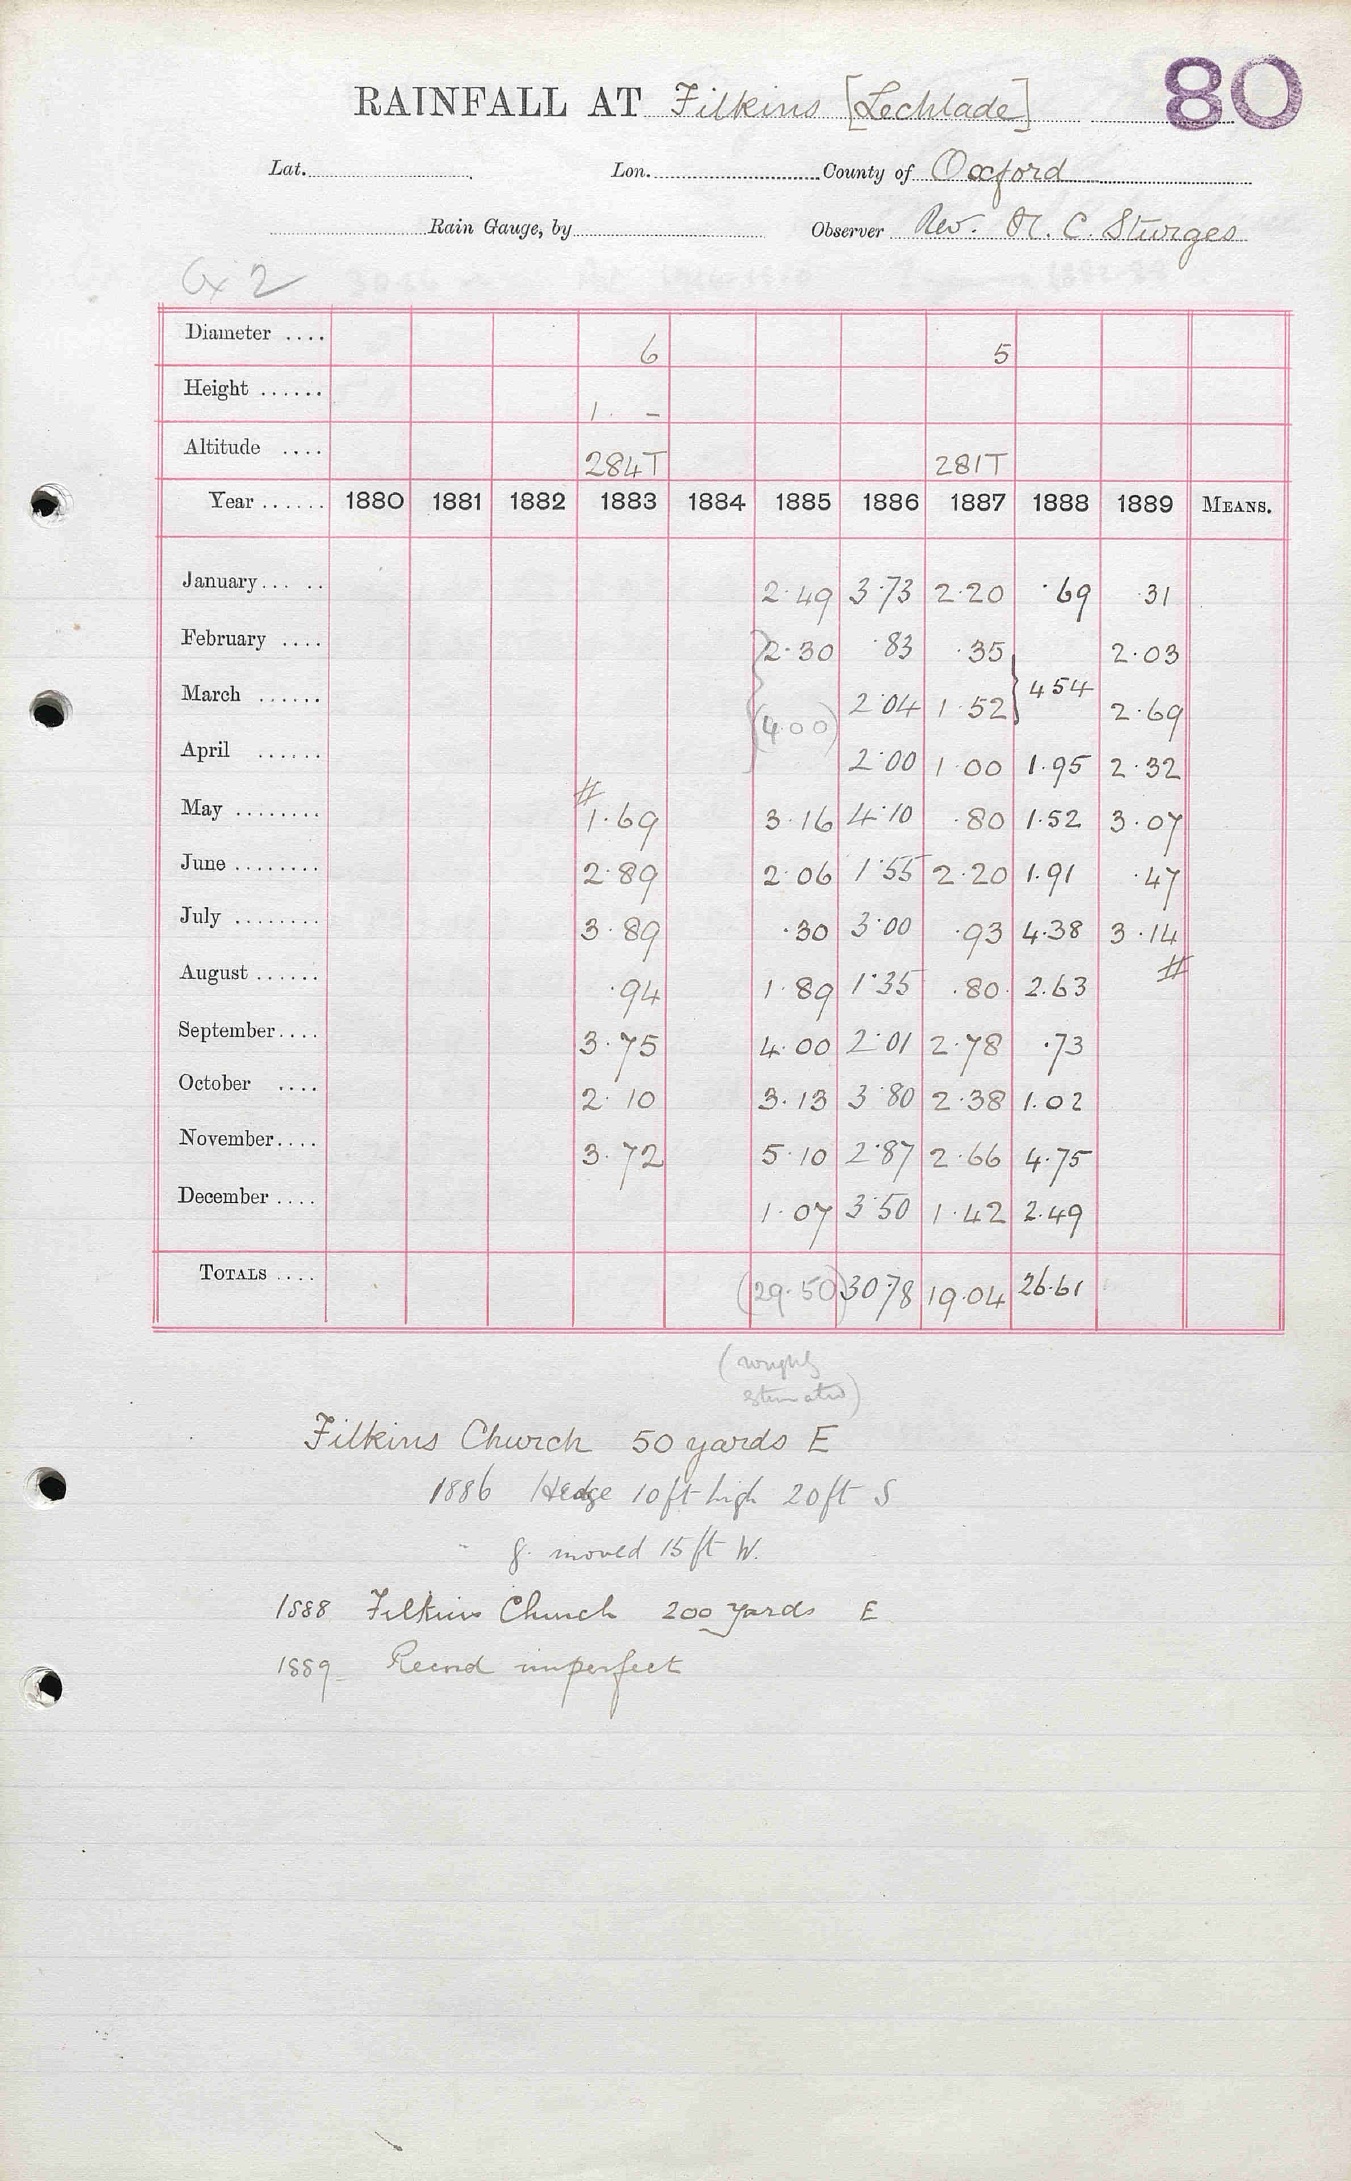 80
RAINFALL AT Filkins [Lechlade]
Lat. Lon. County of Oxford
Rain Gauge, by Observer Rev. M. C. Sturges
Ox 2
Diameter .... 6 5
Height ...... 1 . -
Altitude .... 284T 281T
Year ...... 1880 1881 1882 1883 1884 1885 1886 1887 1888 1889 MEANS.
January... .. 2.49 3.73 2.20 .69 .31
February .... 2.30 .83 .35 2.03
March ...... (4.00) 2.04 1.52 } 4 54 2.69
April ...... 2.00 1.00 1.95 2.32
#
May ........ 1.69 3.16 4.10 .80 1.52 3.07
June ........ 2.89 2.06 1.55 2.20 1.91 .47
July ........ 3.89 .30 3.00 .93 4.38 3.14
August ...... .94 1.89 1.35 .80 2.63 #
September.... 3.75 4.00 2.01 2.78 .73
October .... 2.10 3.13 3.80 2.38 1.02
November.... 3.72 5.10 2.87 2.66 4.75
December .... 1.07 3.50 1.42 2.49
TOTALS .... (29.50) 30.78 19.04 26.61
(roughly
Filkins Church 50 yards E
1886 Hedge 10 ft high 20 ft S
" g. moved 15 ft W.
1888 Filkins Church 200 yards E
1889 Record imperfect